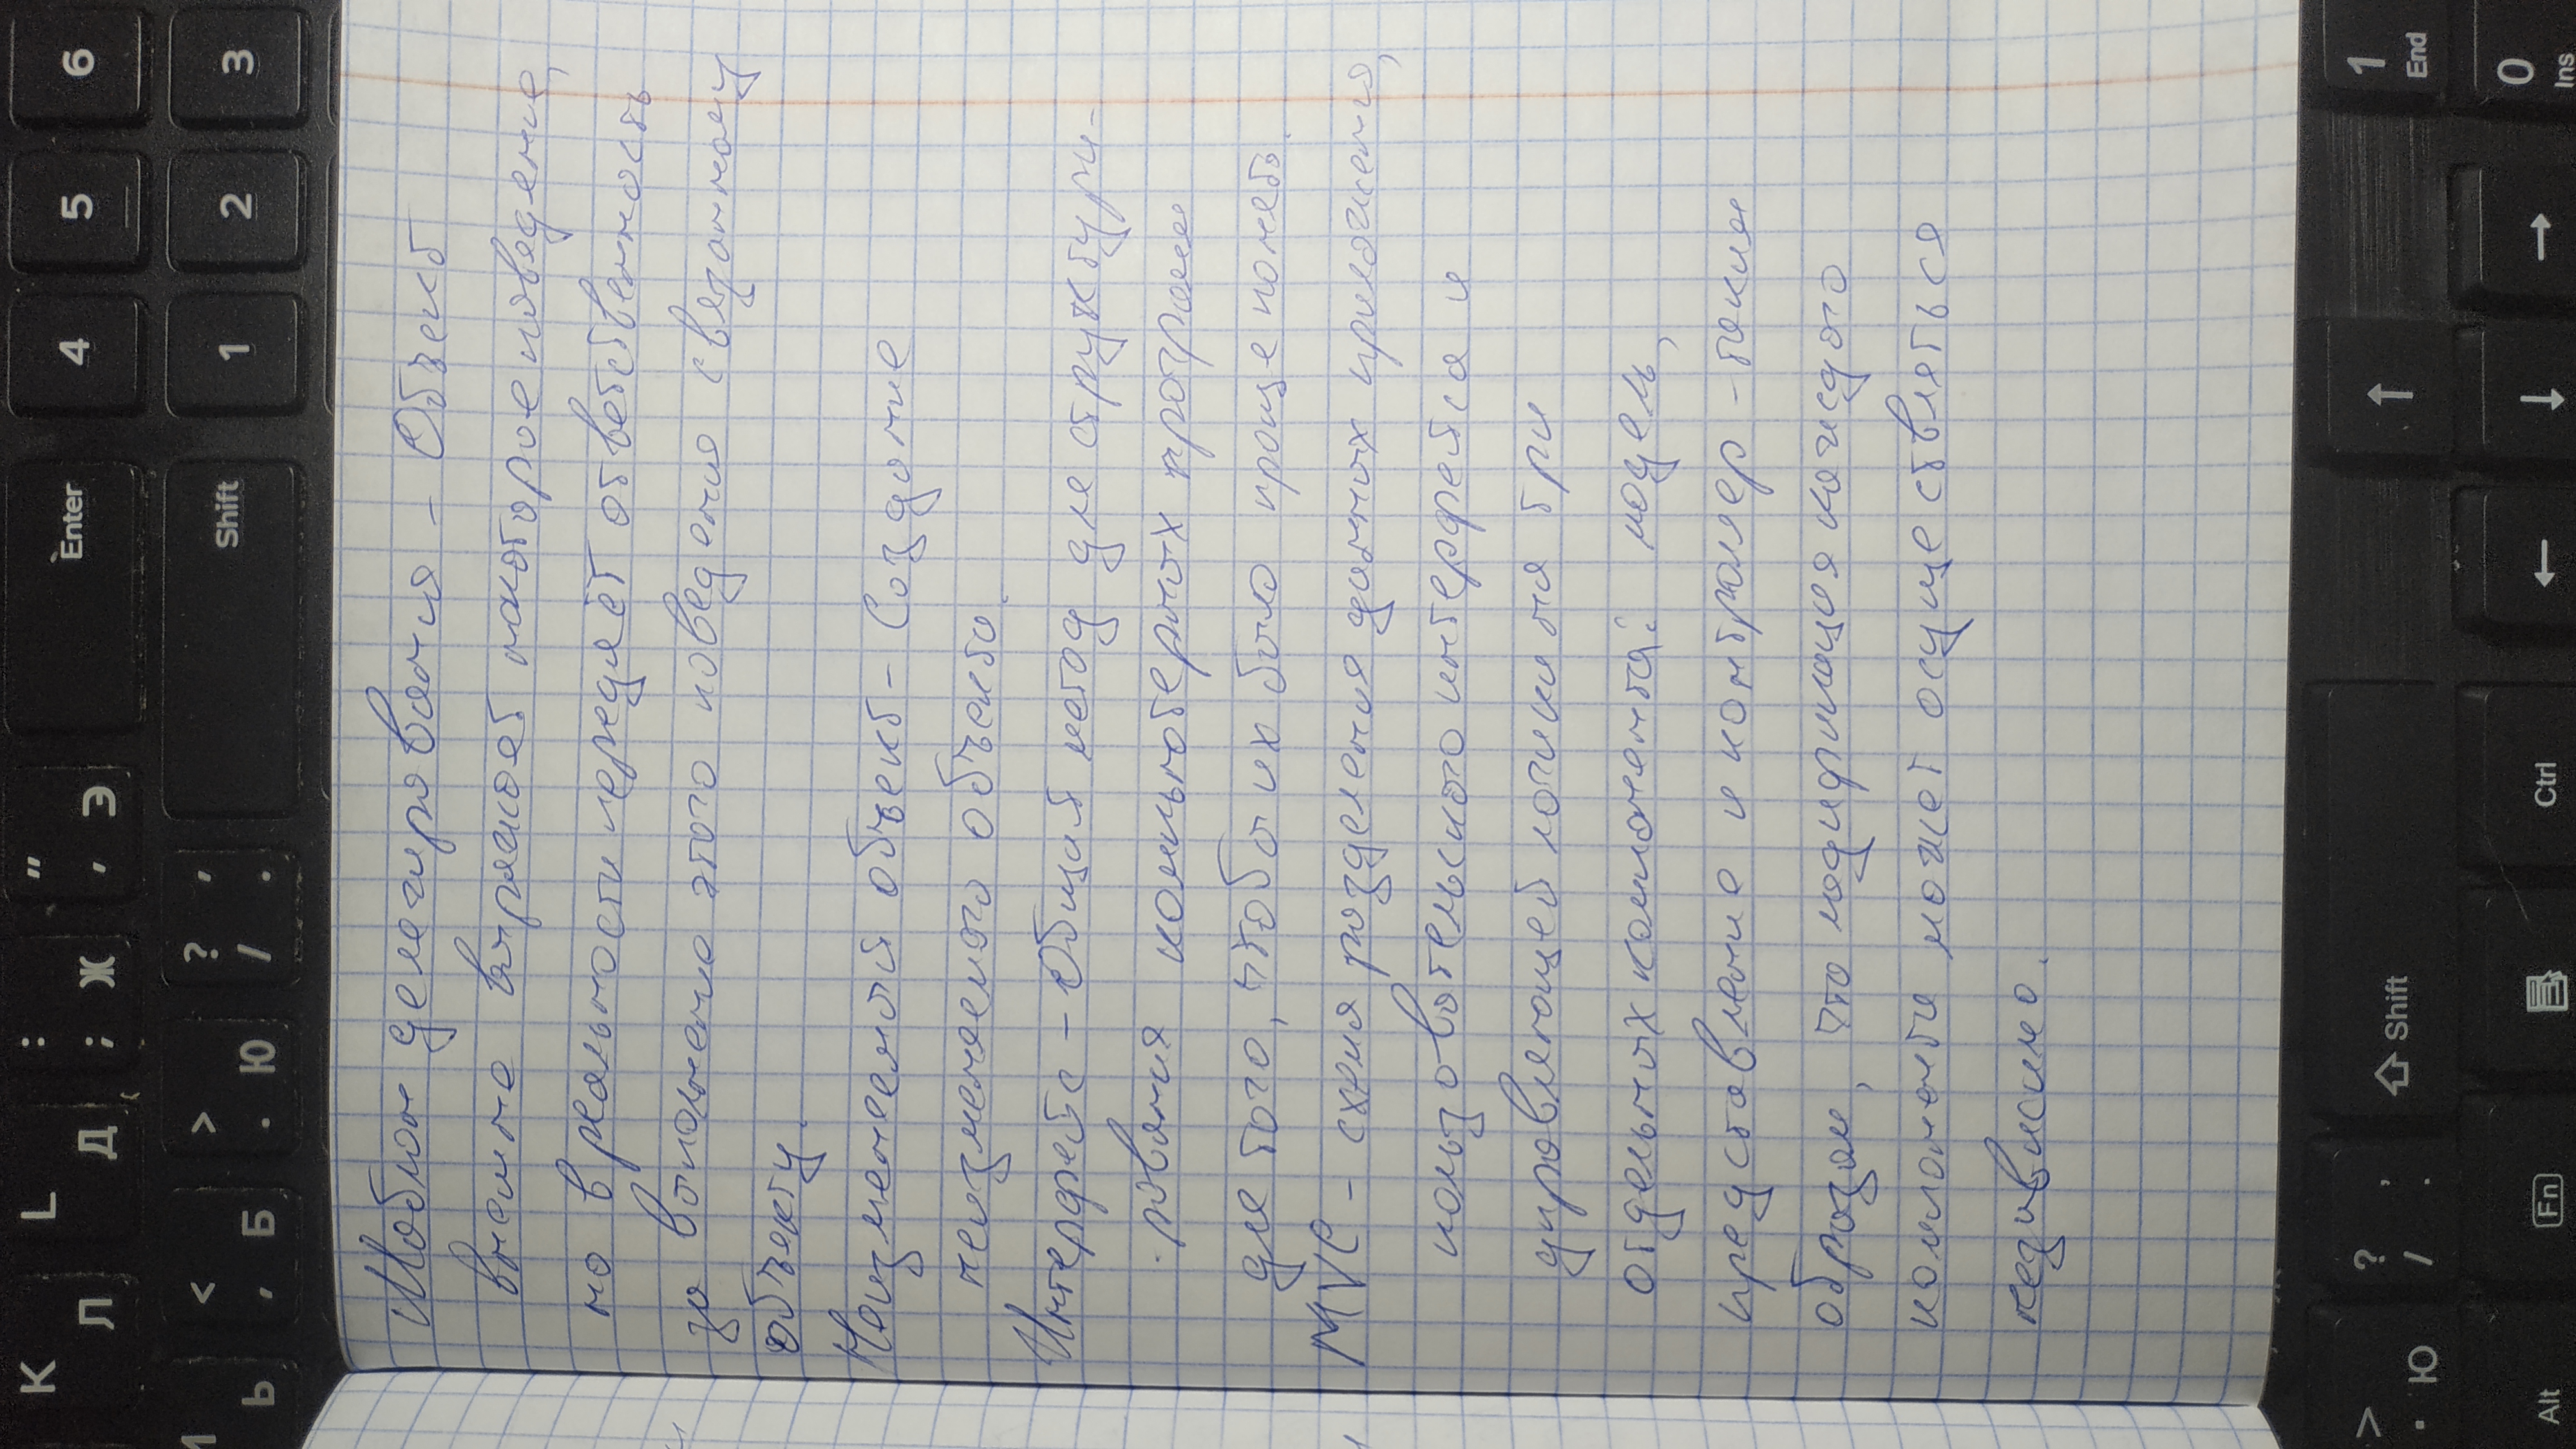 K L : "
Л Д ; Ж ' Э Enter 4 5 6
< > ? ,
Ь , Б . Ю / . Shift 1 2 3
Шаблон делегирования - Объект
внешне выражает некоторое поведение,
но в реальности передаёт ответственность
за выполнение этого поведения связанному
объекту.
Неизменяемый объект - Создание
неизменяемого объекта.
Интерфейс - Общий метод для структури-
рования компьютерных программ
для того, чтобы их было проще понять.
MVC - схема разделения данных приложения,
пользовательского интерфейса и
управляющей логики на три
отдельных компонента: модель,
представление и контроллер - таким
образом, что модификация каждого
компонента может осуществляться
независимо.
> ? , Shift ↑ 1
. Ю / . End
Alt Fn Ctrl ← ↓ → 0
Ins